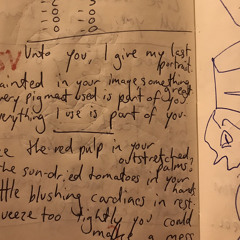 Unto you, I give my last
portrait
painted in your image something
great
every pigment used is part of you
everything I use is part of you.
the red pulp in your
outstretched
palms,
the sun-dried tomatoes in your
hands
little blushing cardiacs in rest
squeeze too tightly you could
make a mess